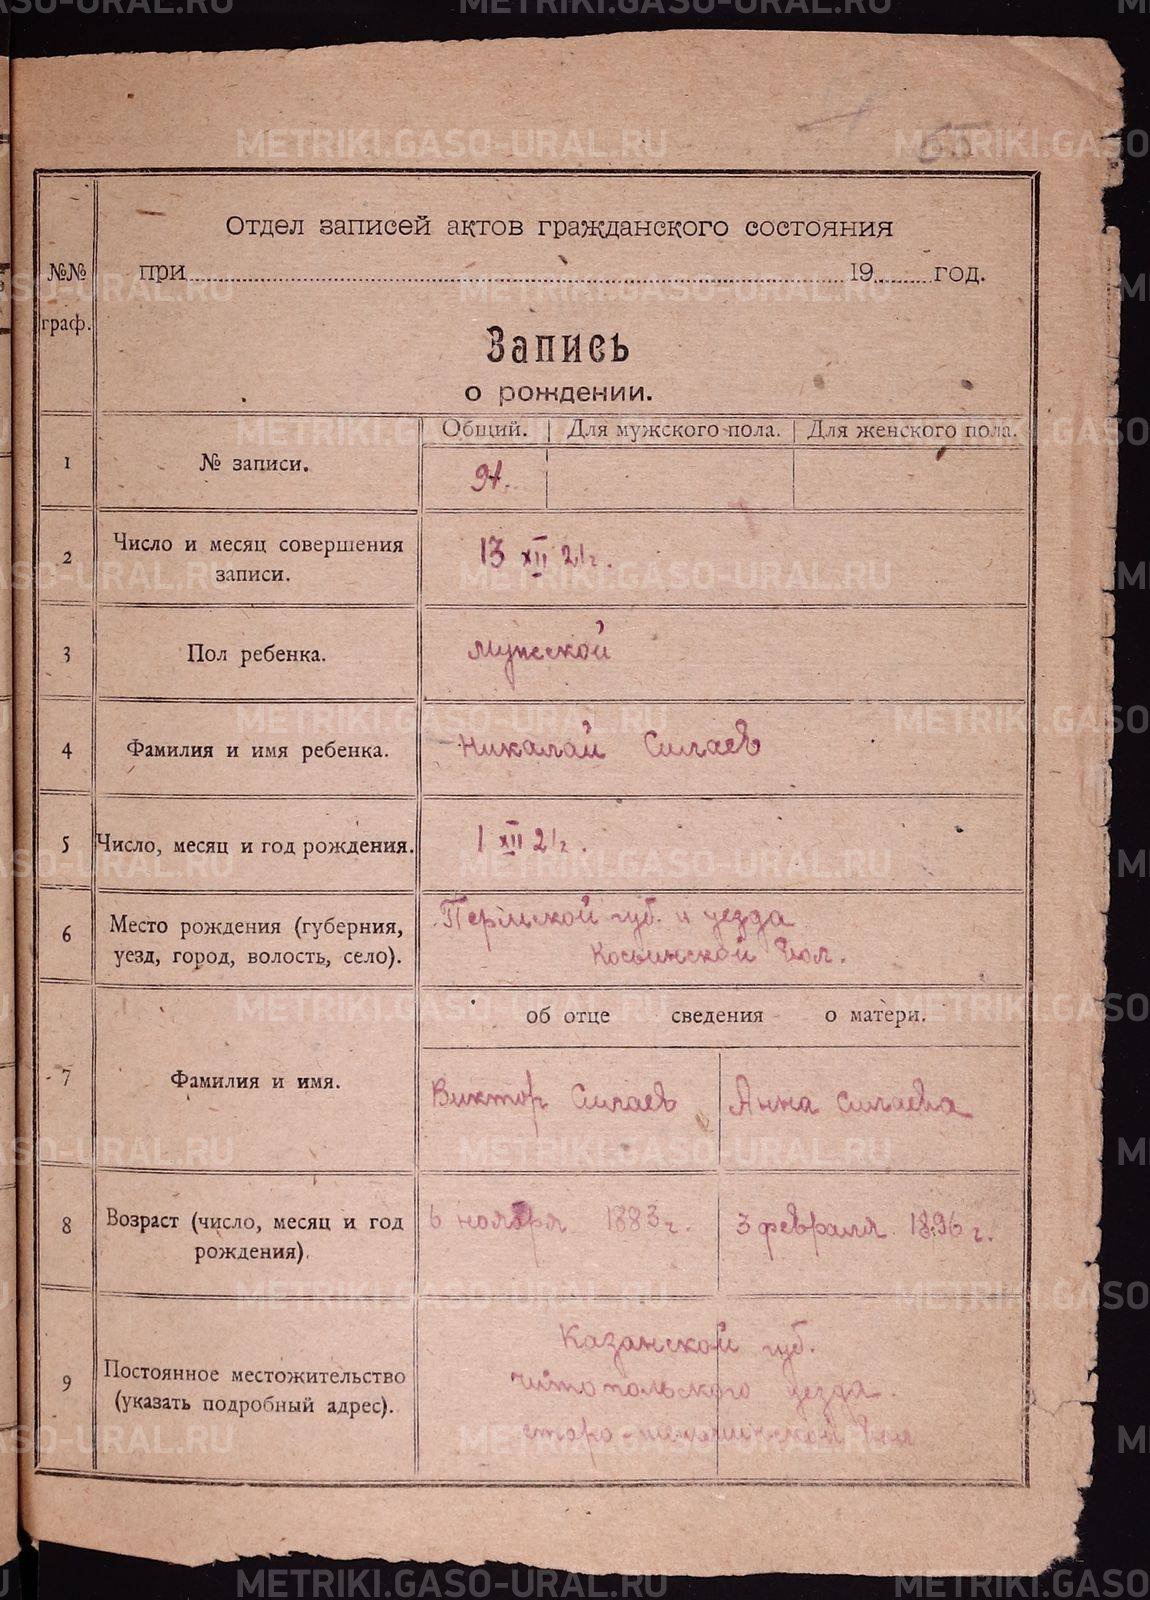 55
Отдел записей актов гражданского состояния
№№ граф.
при 19 год.
Запись
о рождении.
Общий. Для мужского пола. Для женского пола.
1 № записи. 91.
2 Число и месяц совершения записи. 13 XII 21 г.
3 Пол ребенка. Мужской
4 Фамилия и имя ребенка. Николай Силаев
5 Число, месяц и год рождения. 1 XII 21 г.
6 Место рождения (губерния, уезд, город, волость, село). Пермской губ. и уезда
Косьинской вол.
об отце сведения о матери.
7 Фамилия и имя. Виктор Силаев Анна Силаева
8 Возраст (число, месяц и год рождения). 6 ноября 1883 г. 3 февраля 1896 г.
9 Постоянное местожительство (указать подробный адрес). Казанской губ.
Чистопольского уезда.
старо- вол
METRIKI.GASO-URAL.RU